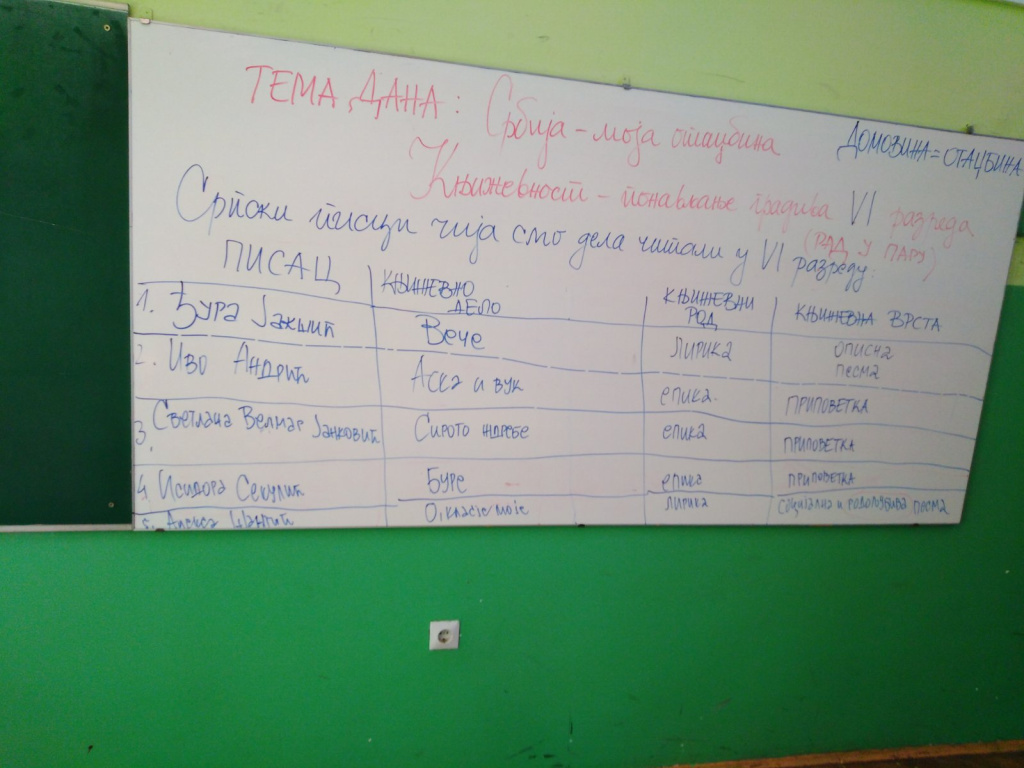 ТЕМА ДАНА: Србија - моја отаџбина
ДОМОВИНА = ОТАЏБИНА
Књижевност - понављање градива VI разреда
(РАД У ПАРУ)
Српски писци чија смо дела читали у VI разреду:
ПИСАЦ КЊИЖЕВНО ДЕЛО КЊИЖЕВНИ РОД КЊИЖЕВНА ВРСТА
1. Ђура Јакшић Вече ЛИРИКА ОПИСНА ПЕСМА
2. Иво Андрић Аска и вук епика ПРИПОВЕТКА
3. Светлана Велмар Јанковић Сирото ждребе епика ПРИПОВЕТКА
4. Исидора Секулић Буре епика ПРИПОВЕТКА
5. Алекса Шантић О, класје моје ЛИРИКА Социјална и родољубива песма